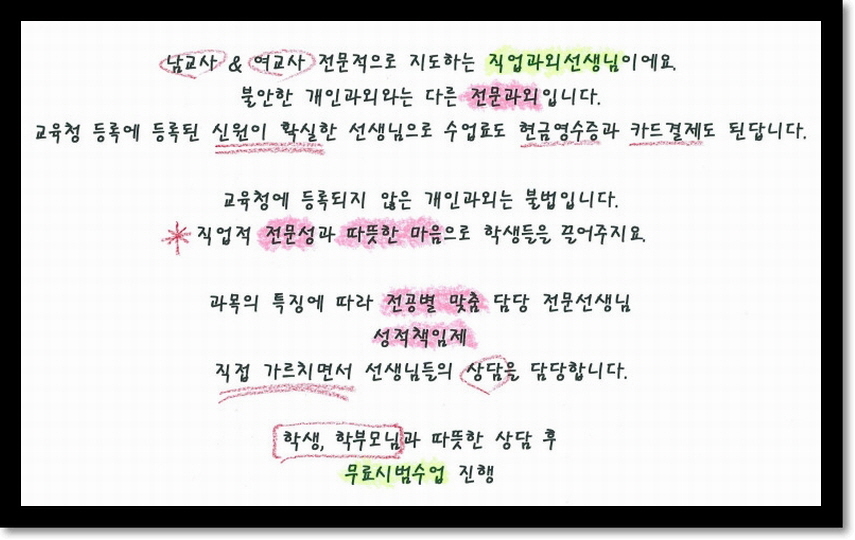 남교사 & 여교사 전문적으로 지도하는 직업과외선생님이예요.
불안한 개인과외와는 다른 전문과외입니다.
교육청 등록에 등록된 신원이 확실한 선생님으로 수업료도 현금영수증과 카드결제도 된답니다.
교육청에 등록되지 않은 개인과외는 불법입니다.
직업적 전문성과 따뜻한 마음으로 학생들을 끌어주지요.
과목의 특징에 따라 전공별 맞춤 담당 전문선생님
성적책임제
직접 가르치면서 선생님들의 상담을 담당합니다.
학생, 학부모님과 따뜻한 상담 후
무료시범수업 진행